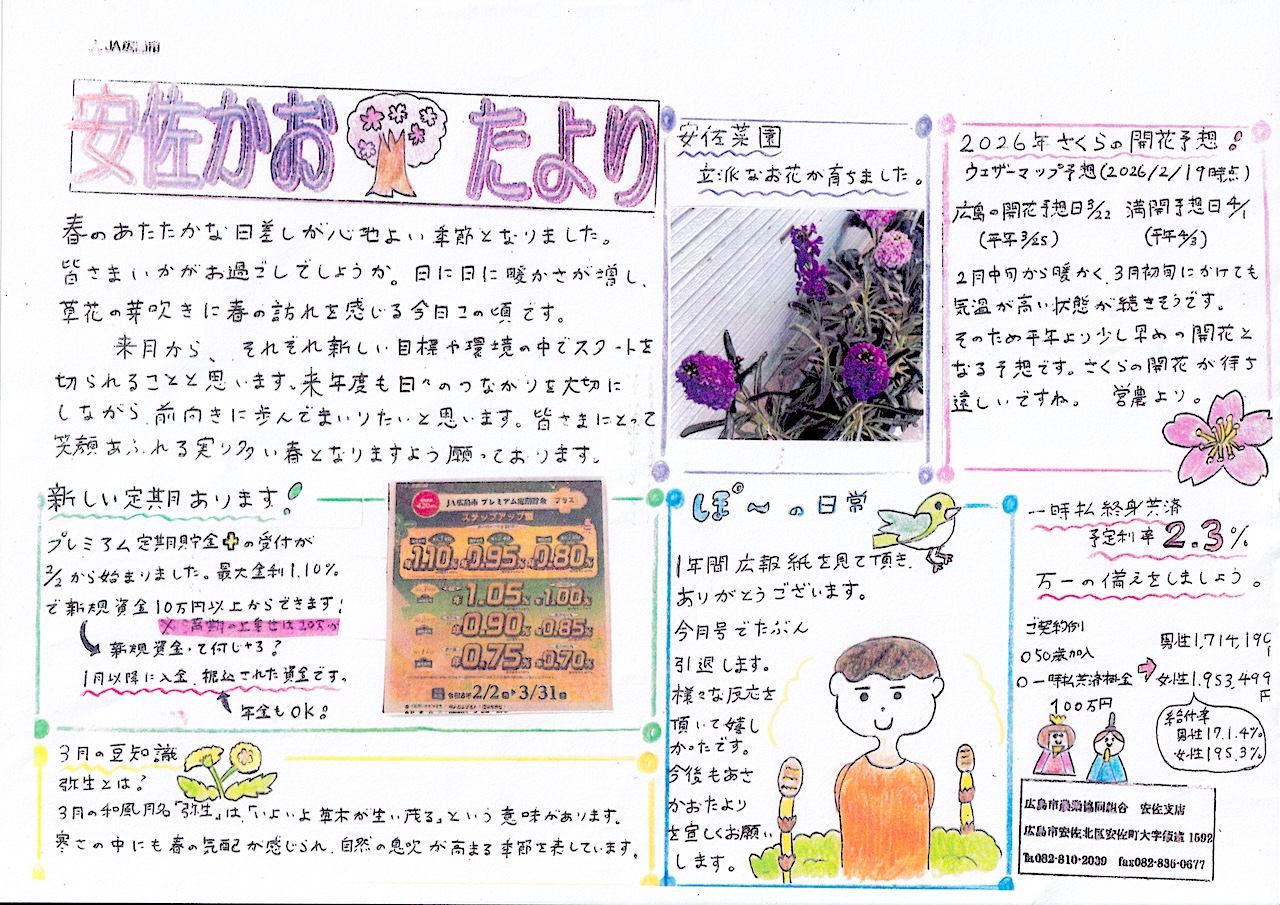 安佐かおたより
春のあたたかな日差しが心地よい季節となりました。
皆さまいかがお過ごしでしょうか。日に日に暖かさが増し、
草花の芽吹きに春の訪れを感じる今日この頃です。
来月から、それぞれ新しい目標や環境の中でスタートを
切られることと思います。来年度も日々のつながりを大切に
しながら、前向きに歩んでまいりたいと思います。皆さまにとって
笑顔あふれる実り多い春となりますよう願っております。
安佐菜園
立派なお花が育ちました。
2026年さくらの開花予想!
ウェザーマップ予想(2026/2/19時点)
広島の開花予想日3/22 満開予想日4/1
(平年3/25) (平年4/3)
2月中旬から暖かく、3月初旬にかけても
気温が高い状態が続きそうです。
そのため平年より少し早めの開花と
なる予想です。さくらの開花が待ち
遠しいですね。 営農より。
新しい定期あります!
プレミアム定期貯金+の受付が
2/2から始まりました。最大金利1.10%
で新規資金10万円以上からできます!
新規資金って何じゃろ?
1月以降に入金、振込された資金です。
年金もOK!
JA広島市 プレミアム定期貯金 プラス
ステップアップ型
年1.10% 年0.95% 年0.80%
年1.05% 年1.00%
年0.90% 年0.85%
年0.75% 年0.70%
2/2月▶3/31火
ぽ~の日常
1年間広報紙を見て頂き、
ありがとうございます。
今月号でたぶん
引退します。
様々な反応を
頂いて嬉し
かったです。
今後もあさ
かおたより
を宜しくお願い
します。
一時払終身共済
予定利率2.3%
万一の備えをしましょう。
ご契約例
○50歳加入
○一時払共済掛金
100万円
女性1,953,499円
給付率
男性171.4%
女性195.3%
3月の豆知識
弥生とは?
3月の和風月名「弥生」は、「いよいよ草木が生い茂る」という意味があります。
寒さの中にも春の気配が感じられ、自然の息吹が高まる季節を表しています。
広島市農業協同組合 安佐支店
広島市安佐北区安佐町大字飯室1592
℡082-810-2039 fax082-835-0677